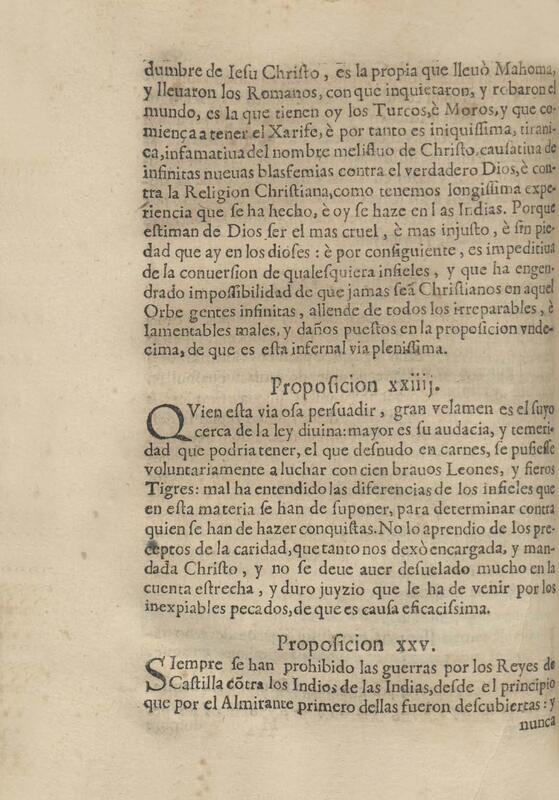 dumbre de Iesu Christo, es la propia que lleuò Mahoma,
y lleuaron los Romanos, con que inquietaron, y robaron el
mundo, es la que tienen oy los Turcos, è Moros, y que co-
miença a tener el Xarife, è por tanto es iniquissima, tirani-
ca, infamatiua del nombre melifluo de Christo, causatiua de
infinitas nueuas blasfemias contra el verdadero Dios, è con-
tra la Religion Christiana, como tenemos longissima expe-
riencia que se ha hecho, è oy se haze en las Indias. Porque
estiman de Dios ser el mas cruel, è mas injusto, è sin pie-
dad que ay en los dioses: è por consiguiente, es impeditiua
de la conuersion de qualesquiera infieles, y que ha engen-
drado impossibilidad de que jamas seã Christianos en aquel
Orbe gentes infinitas, allende de todos los irreparables, è
lamentables males, y daños puestos en la proposicion vnde-
cima, de que es esta infernal via plenissima.
Proposicion xxiiij.
QVien esta via osa persuadir, gran velamen es el suyo
cerca de la ley diuina: mayor es su audacia, y temeri-
dad que podria tener, el que desnudo en carnes, se pusiesse
voluntariamente a luchar con cien brauos Leones, y fieros
Tigres: mal ha entendido las diferencias de los infieles que
en esta materia se han de suponer, para determinar contra
quien se han de hazer conquistas. No lo aprendio de los pre-
ceptos de la caridad, que tanto nos dexò encargada, y man-
dada Christo, y no se deue auer desuelado mucho en la
cuenta estrecha, y duro juyzio que le ha de venir por los
inexpiables pecados, de que es causa eficacissima.
Proposicion xxv.
SIempre se han prohibido las guerras por los Reyes de
Castilla cõtra los Indios de las Indias, desde el principio
que por el Almirante primero dellas fueron descubiertas: y
nunca